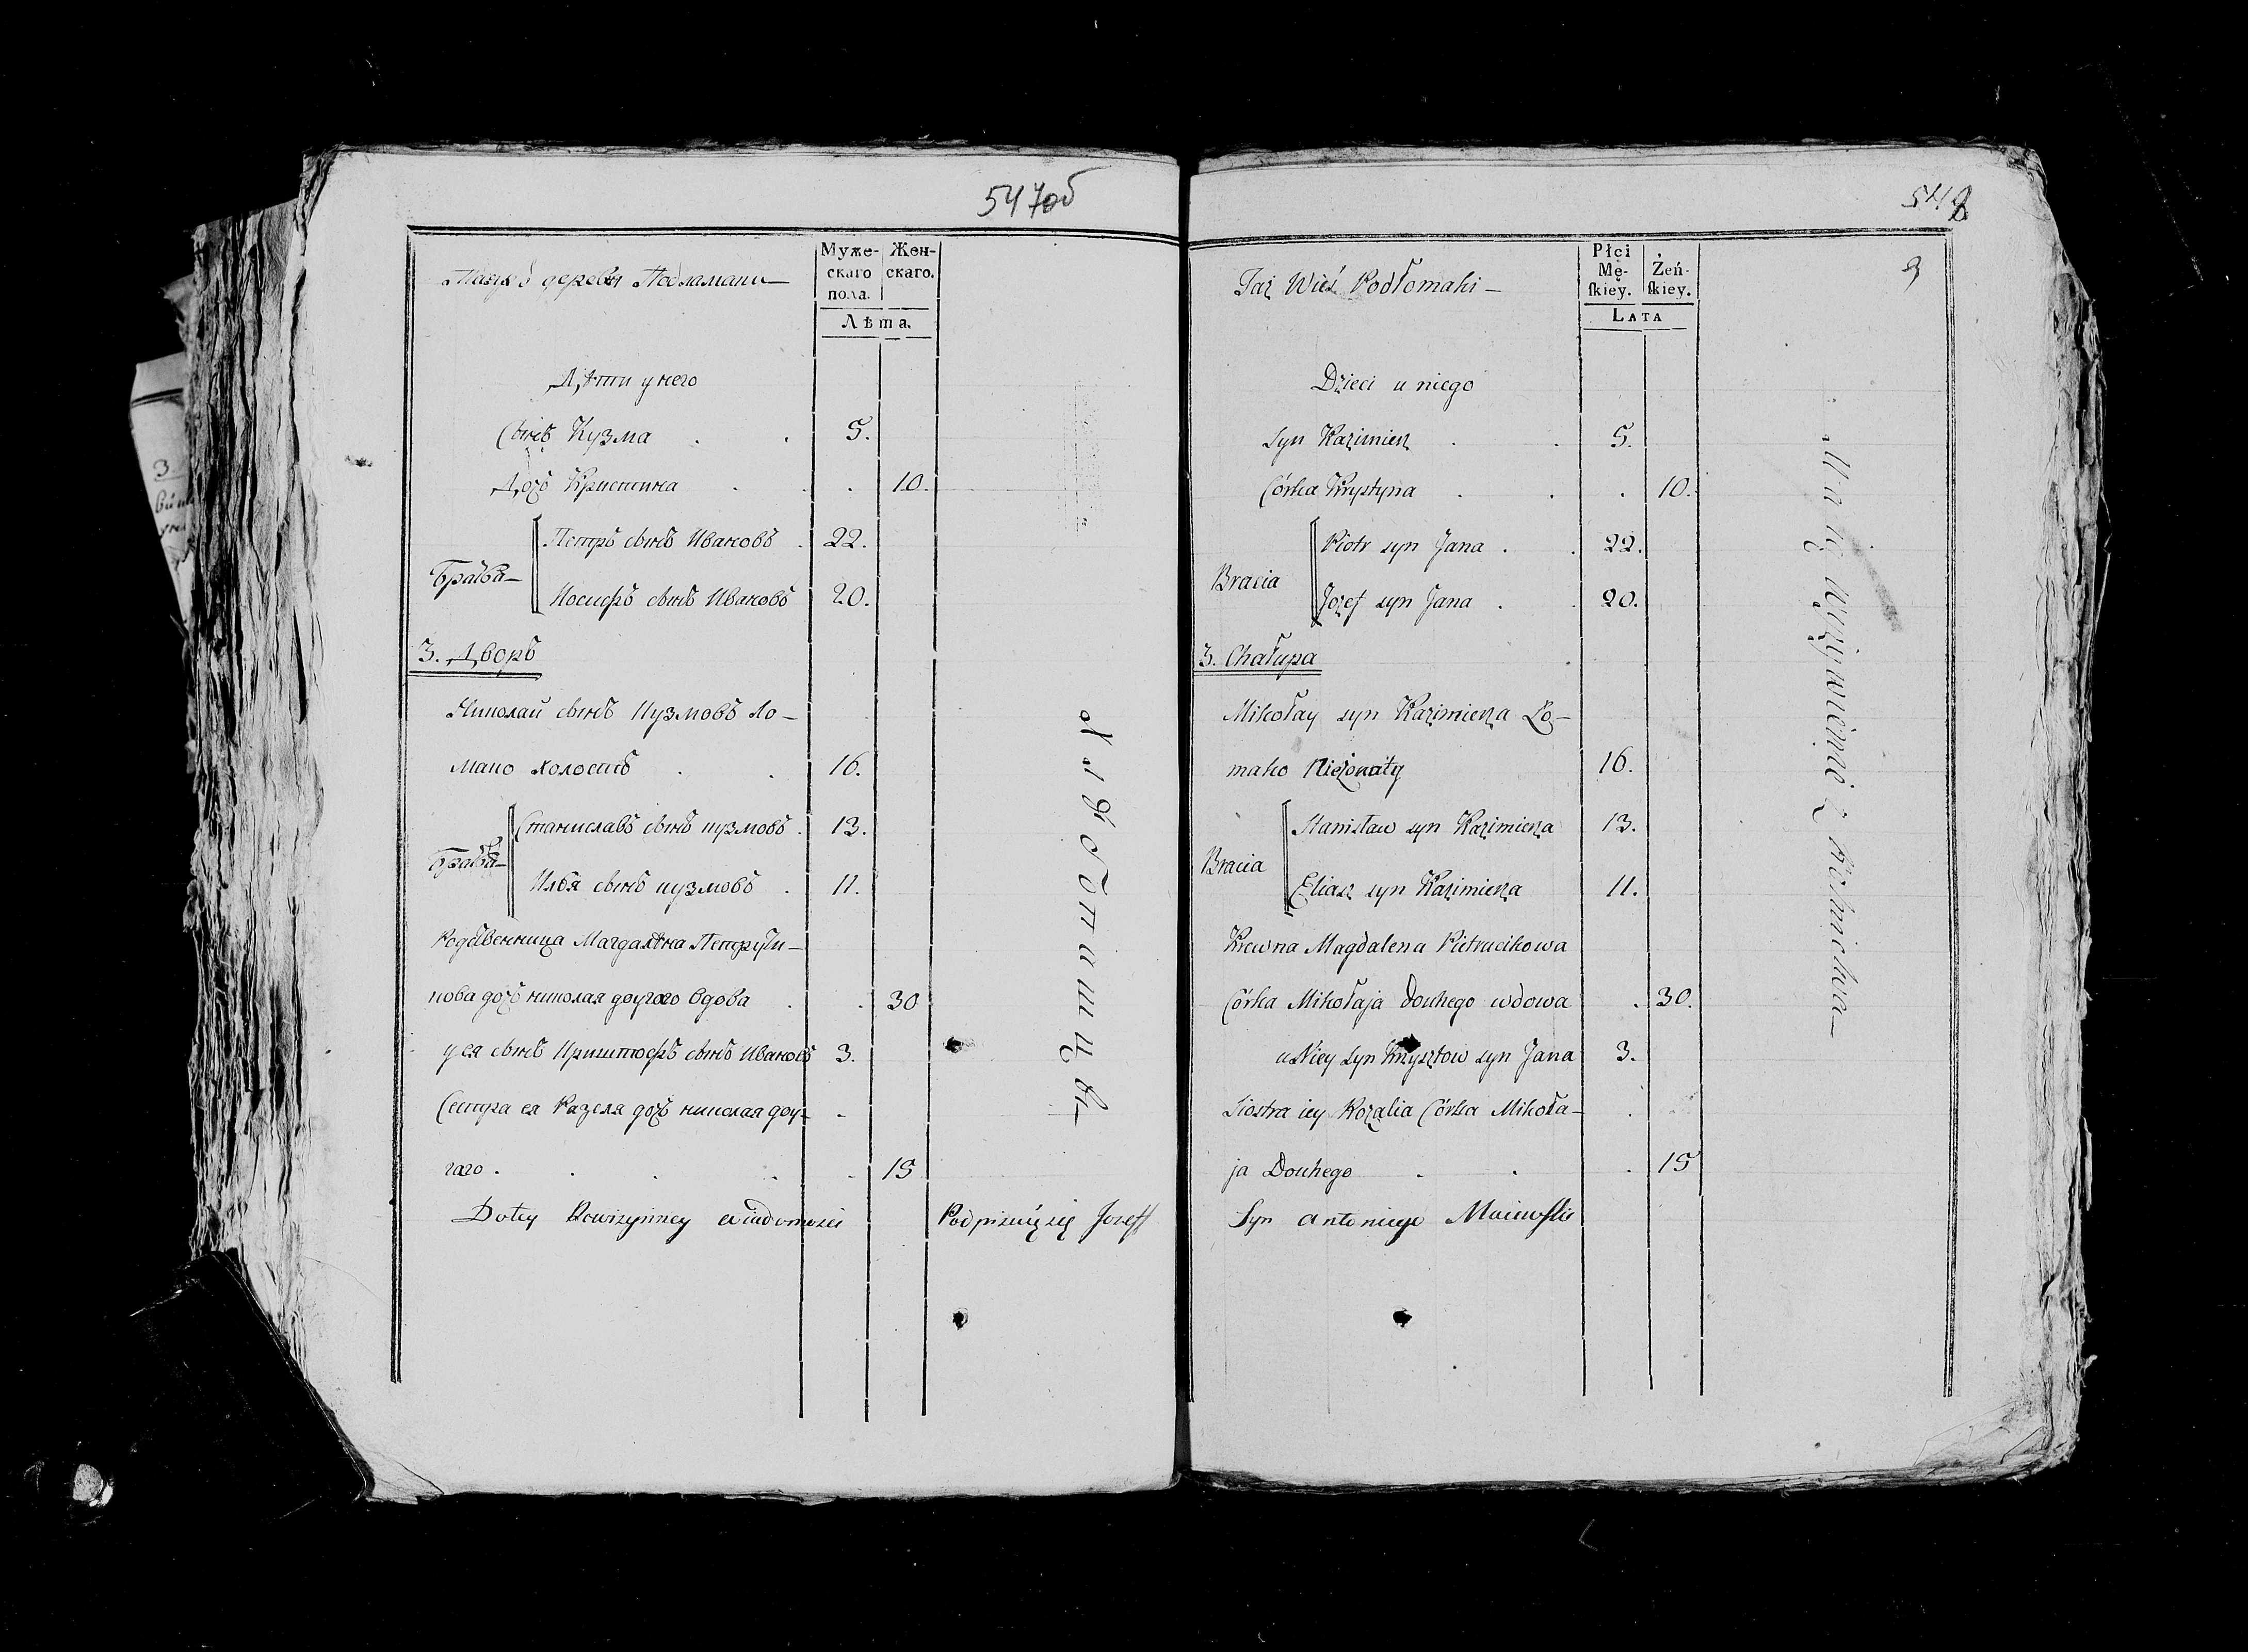 547об
Муже-
скаго
пола.
Жен-
скаго.
Лѣта.
деревн Подламаки
Дѣти у него
Сынъ Кузма . . 5.
Дочь Кристина . . . 10.
Братья
Петръ сынъ Ивановъ . 22.
Иосифъ сынъ Ивановъ 20.
3. Дворъ
Николай сынъ Кузмовъ Ло-
мако холостъ . . 16.
Братья
Станиславъ сынъ кузмовъ . 13.
Илья сынъ кузмовъ . 11.
Родственница Магдалѣна
кова дочь николая доугаго вдова . . 30
у ея сынъ Криштофъ сынъ Ивановъ 3.
Сестра ея Разеля дочь николая доу-
гаго . . . . . 15
Do tey Rewizyiney wiadomosci Podpisuię się Jozeff
548
3
Płci
Mę-
skiey.
Żeń-
skiey.
Lata
Taż Wieś Podłomaki
Dzieci u niego
syn Kazimierz . . 5.
Córka Krystyna . . . 10.
Bracia
Piotr syn Jana . . 22.
Jozef syn Jana . . 20.
3. Chałupa
Mikołay syn Kazimierza Ło-
mako Nieżonaty 16.
Bracia
Stanisław syn Kazimierza 13.
Eliasz syn Kazimierza 11.
Krewna Magdalena Pietrucikowa
Córka Mikołaja Douhego wdowa . 30.
u Niey syn Krzysztow syn Jana 3.
Siostra iey Rozalia Córka Mikoła-
ja Douhego . . . 15
Syn Antoniego